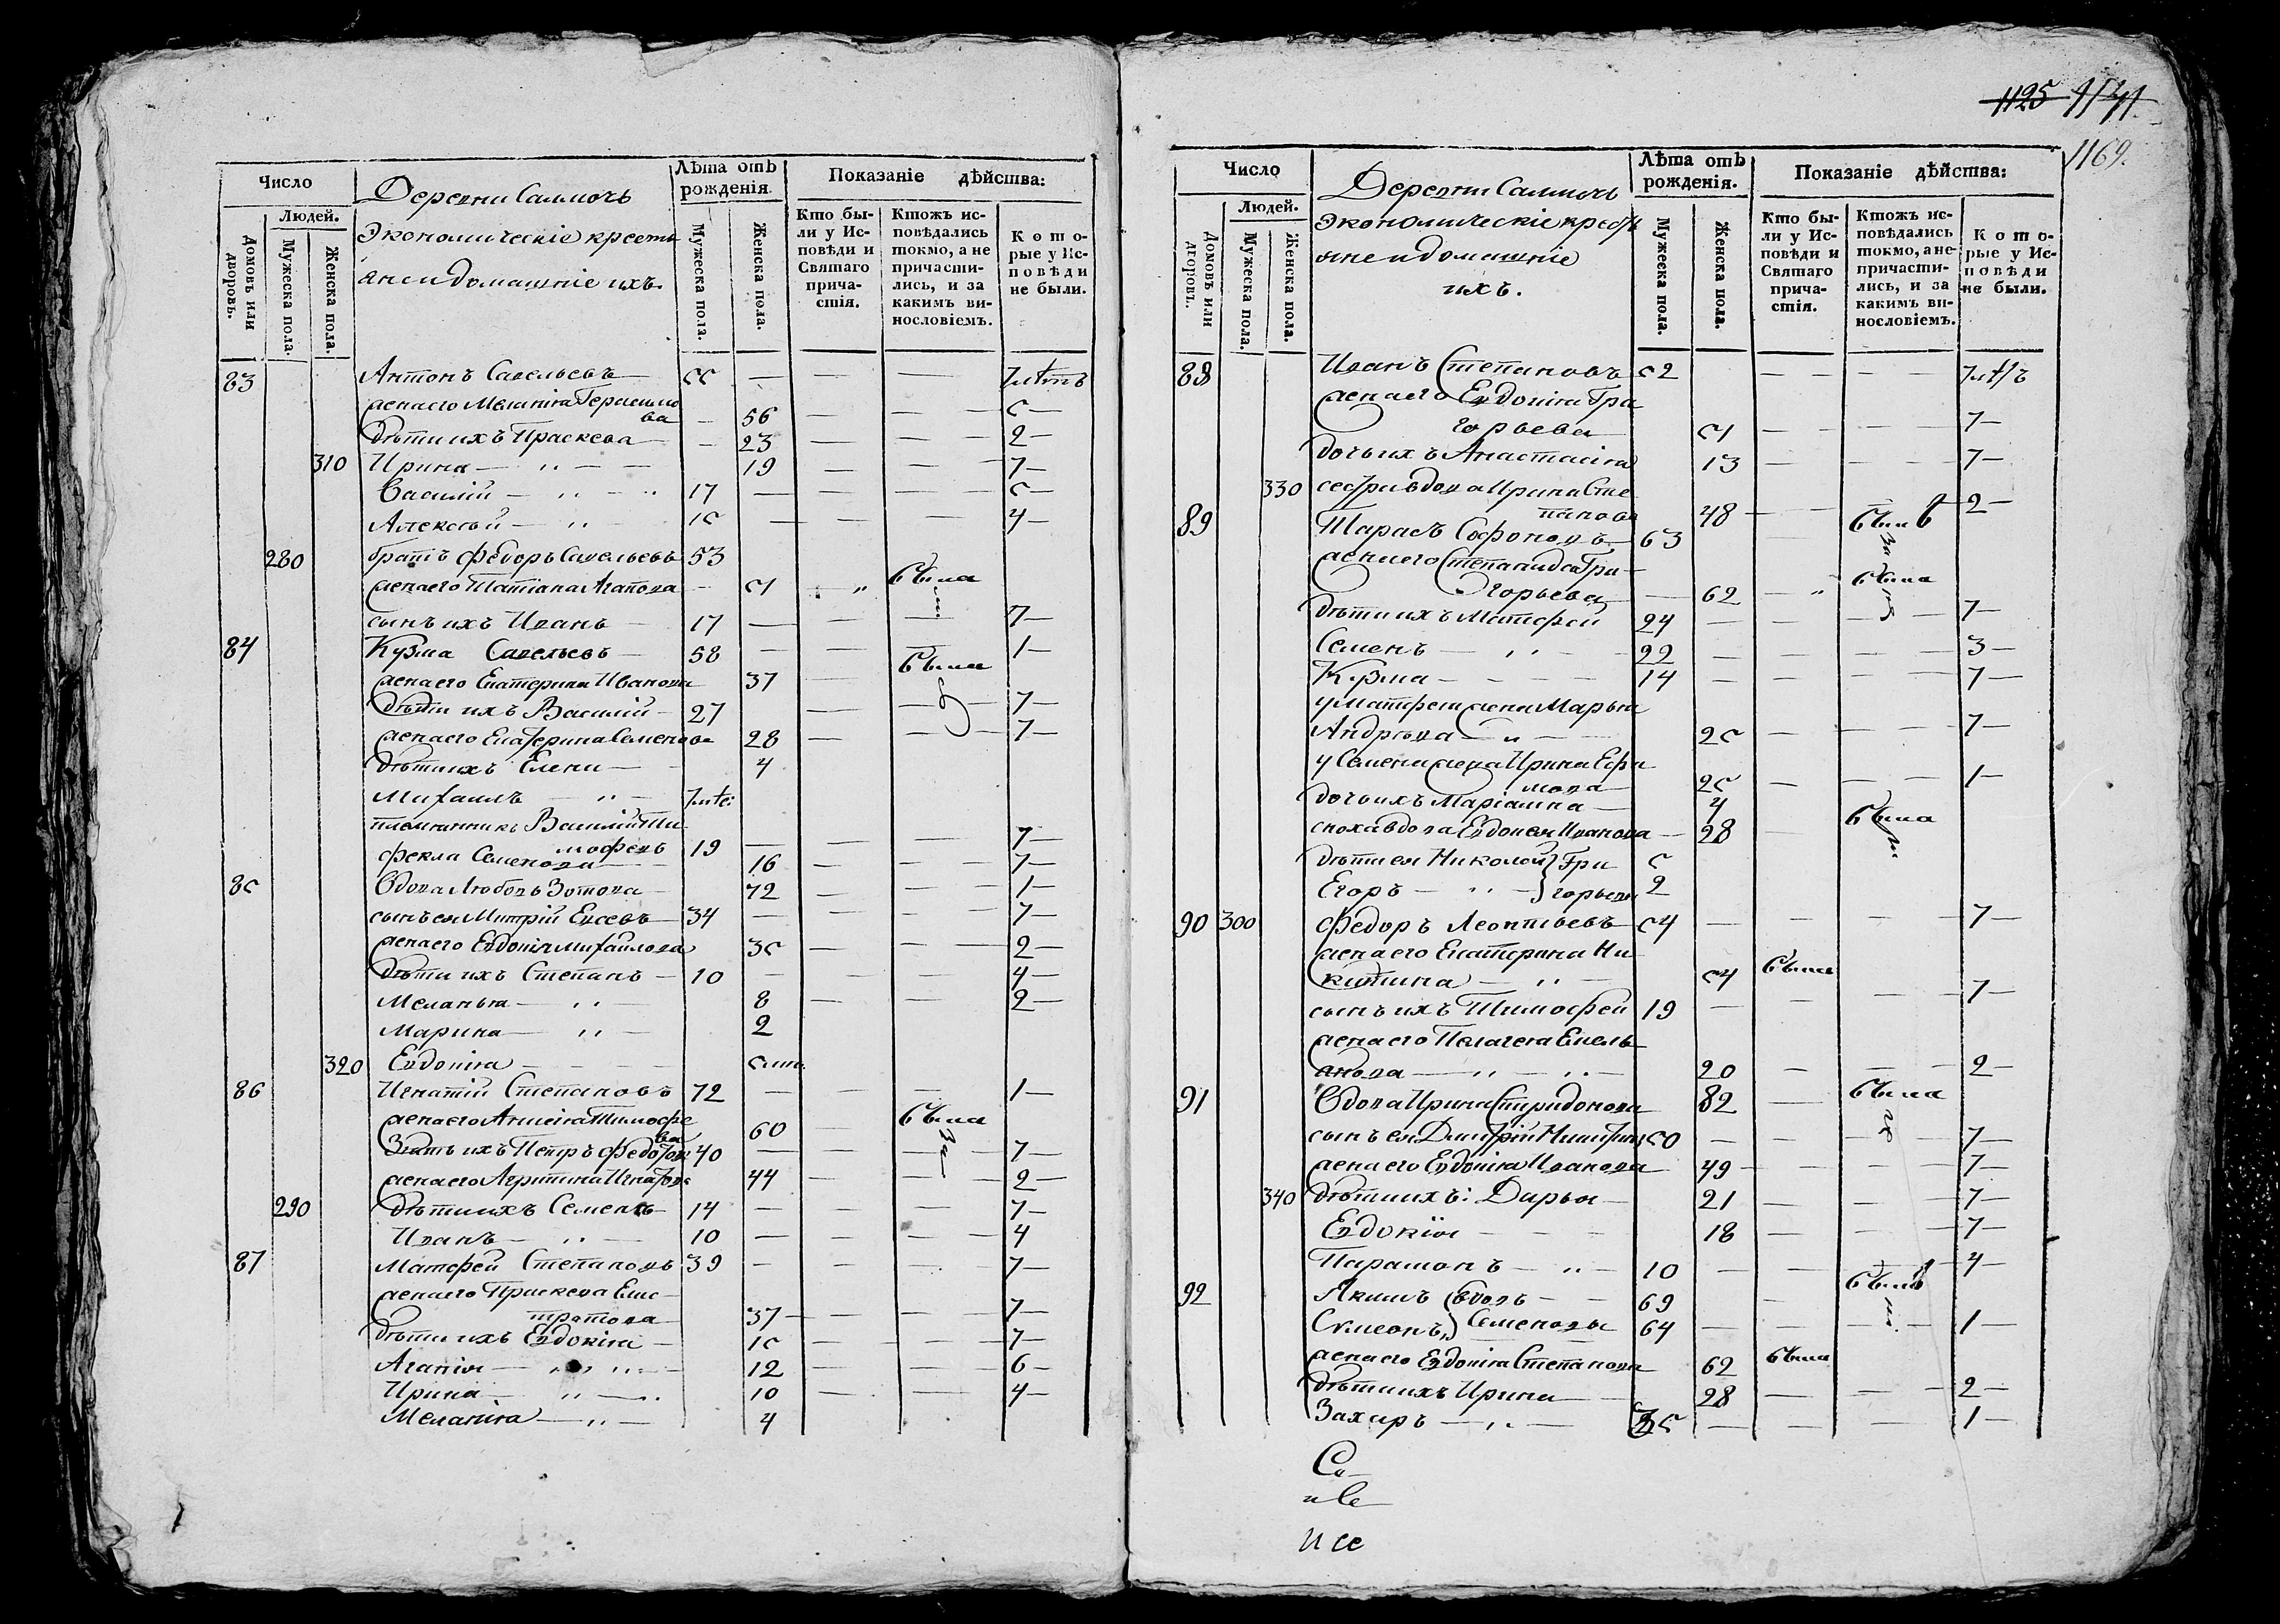 Число
Людей.
Домовъ или дворовъ.
Мужеска пола.
Женска пола.
Деревни Салмочь
Экономическіе кресть
яне и домашніе ихъ.
Лѣта отъ рожденія.
Мужеска пола.
Женска пола.
Показаніе дѣйства:
Кто были у Исповѣди и Святаго причастія.
Ктожъ исповѣдались токмо, а не причастились, и за какимъ винословіемъ.
Которые у Исповѣди не были.
83 Антонъ Савельевъ 55 — — — 7 лѣтъ
жена его Меланія Герасимо
ва — 56 — — 5 —
дѣти ихъ Праскева — 23 — — 2 —
310 Ирина — 19 — — 7 —
Василій — 17 — — — 5 —
Алексѣй — 15 — — — 4 —
280 братъ Федоръ Савельевъ 53
жена его Татіана Агапова — 51 была
сынъ ихъ Иванъ — 17 — — — 7 —
84 Кузма Савельевъ — 58 — — — 1 —
жена его Екатерина Иванова 37 — была
дѣти ихъ Василій — 27 — — 7 —
жена его Екатерина Семенова 28 — — 7 —
дѣти ихъ Елена — 4
Михаилъ —
племянникъ Василій Ти
мофеевъ 19 — — — 7 —
Фекла Семенова — 16 — — 7 —
85 Вдова Любовь Зотова — 72 — — 1 —
сынъ ея Митрій Евсевъ — 34 — — — 7 —
жена его Евдокія Михайлова 35 — — 2 —
дѣти ихъ Степанъ — 10 — — — 4 —
Меланья — 8 — — 2 —
Марина — 2
320 Евдокія —
86 Игнатій Степановъ 72 — — — 1 —
жена его Анисія Тимофе
ва 60 — была
Зять ихъ Петръ Федотовъ 40 — — — 7 —
жена его Агрипина Игнатова 44 — — 2 —
290 дѣти ихъ Семенъ — 14 — — — 7 —
Иванъ — 10 — — — 4
87 Матфей Степановъ 39 — — — 7 —
жена его Праскева Евс
тратова 37 — — — 7 —
дѣти ихъ Евдокія — 15 — — 7 —
Агапія — 12 — — 6 —
Ирина — 10 — — 4 —
Меланія — 4
1125
1169.
Число
Людей.
Домовъ или дворовъ.
Мужеска пола.
Женска пола.
Деревни Салмочь
Экономическіе кресть
яне и домашніе
ихъ.
Лѣта отъ рожденія.
Мужеска пола.
Женска пола.
Показаніе дѣйства:
Кто были у Исповѣди и Святаго причастія.
Ктожъ исповѣдались токмо, а не причастились, и за какимъ винословіемъ.
Которые у Исповѣди не были.
88 Иванъ Степановъ 52 — — — 7 лѣтъ
жена его Евдокія Гри
горьева 51 — — — 7 —
дочь ихъ Анастасія 13 — — — 7 —
330 сестра вдова Ирина Сте
панова 48 — — — 2 —
89 Тарасъ Софоновъ — 63 — былъ
жена его Степанида Гри
горьева — 62 — была
дѣти ихъ Матфей 24 — — — 7 —
Семенъ — 22 — — — 3 —
Кузма — 14 — — — 7 —
у Матфея жена Марья
Андреева — 25 — — — 7 —
у Семена жена Ирина Ефи
мова 25 — — — 1 —
дочь ихъ Маріамна — 4
сноха вдова Евдокея Иванова — 28 — была
дѣти ея Николай } Гри 5
Егоръ — } горьевы 2
90 300 Федоръ Леонтьевъ — 54 — — — 7 —
жена его Екатерина Ни
китина — 54 была
сынъ ихъ Тимофей 19 — — — 7 —
жена его Пелагея Емель
янова — 20 — — — 2 —
91 Вдова Ирина Спиридонова 82 — была
сынъ ея Дмитрій 50 — — — 7 —
жена его Евдокія Иванова — 49 — — — 7 —
340 дѣти ихъ: Дарья — 21 — — — 7 —
Евдокія — 18 — — 7 —
Парамонъ — 10 — — — 4 —
92 Якимъ ( вдовъ — 69 — былъ
Симеонъ ) Семеновы 64 — — — 1 —
жена его Евдокія Степанова 62 была
дѣти ихъ Ирина — 28 — — 2 —
Захаръ — 35 — — 1 —